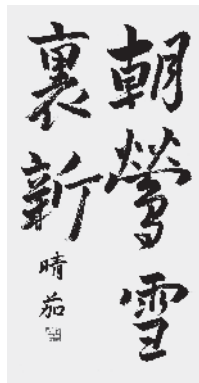 朝鶯雪
裏新
晴茄